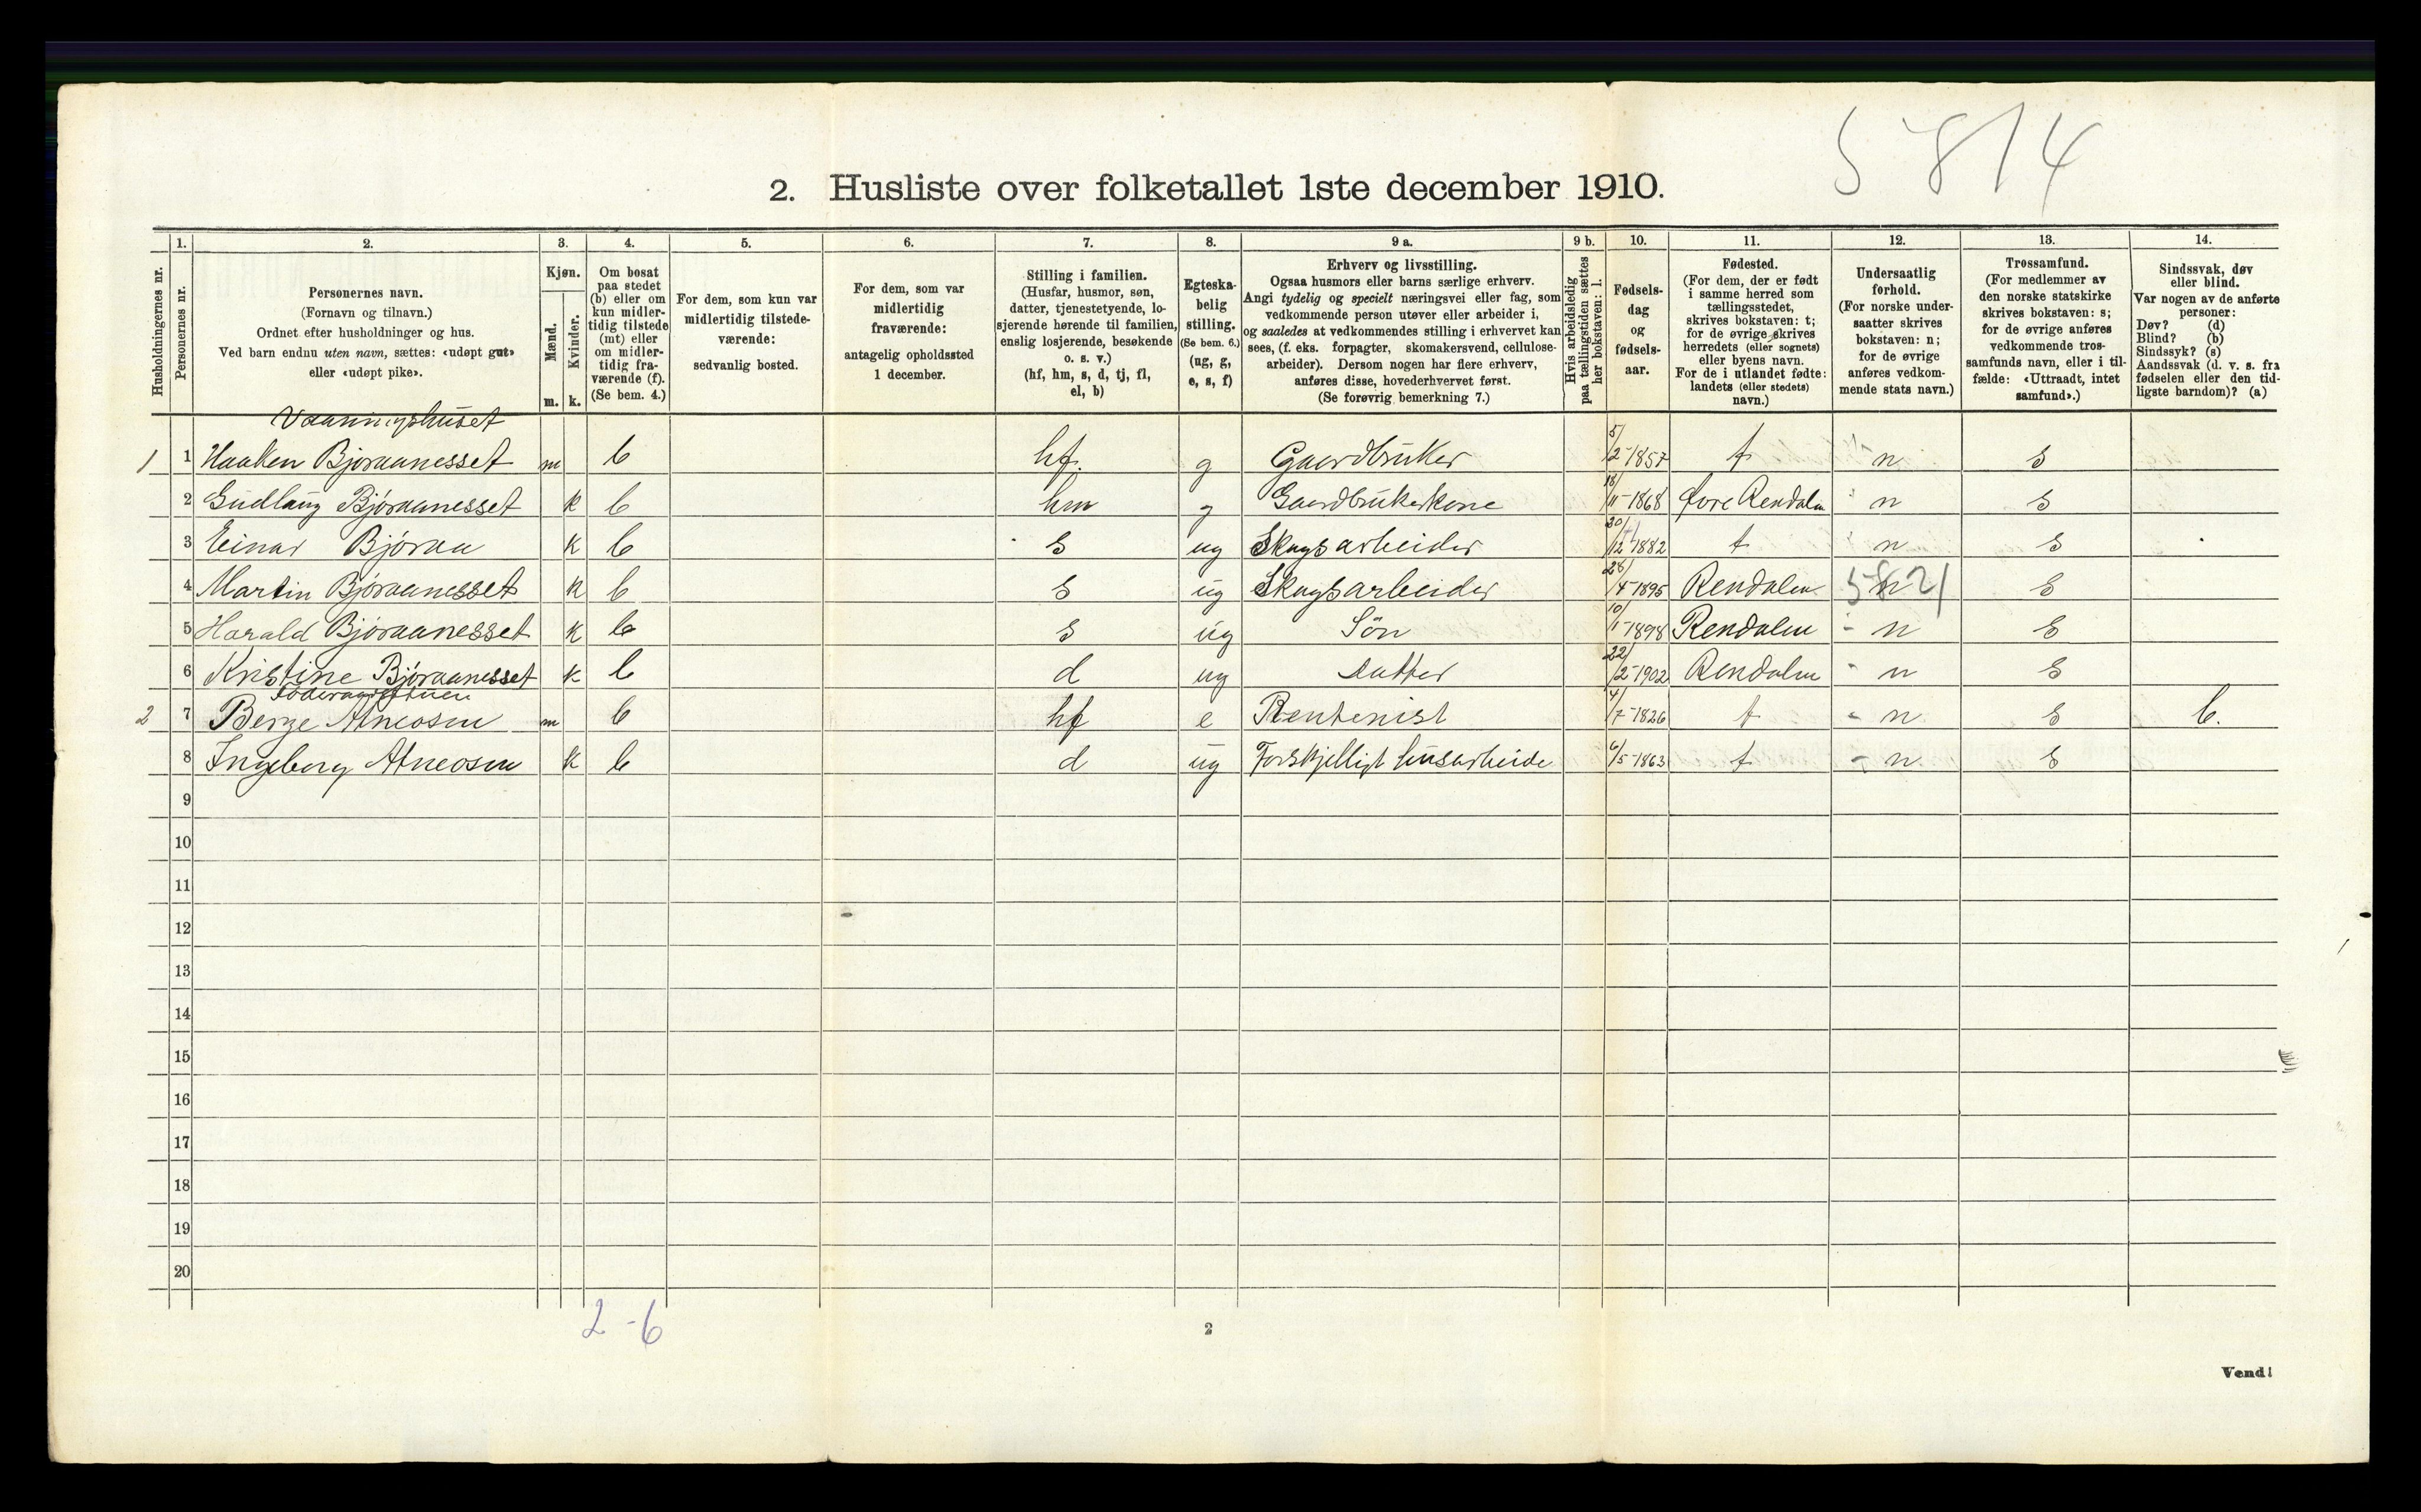 5814
2. Husliste over folketallet 1ste december 1910.
Husholdningernes nr.
1.
Personernes nr.
2.
Personernes navn.
(Fornavn og tilnavn.)
Ordnet efter husholdninger og hus.
Ved barn endnu uten navn, sættes: «udøpt gut»
eller «udøpt pike».
3.
Kjøn.
Mænd.
Kvinder.
m. k.
4.
Om bosat
paa stedet
(b) eller om
kun midler-
tidig tilstede
(mt) eller
om midler-
tidig fra-
værende (f).
(Se bem. 4.)
5.
For dem, som kun var
midlertidig tilstede-
værende:
sedvanlig bosted.
6.
For dem, som var
midlertidig
fraværende:
antagelig opholdssted
1 december.
7.
Stilling i familien.
(Husfar, husmor, søn,
datter, tjenestetyende, lo-
sjerende hørende til familien,
enslig losjerende, besøkende
o. s. v.)
(hf, hm, s, d, tj, fl,
el, b)
8.
Egteska-
belig
stilling.
(Se bem. 6.)
(ug, g,
e, s, f)
9 a.
Erhverv og livsstilling.
Ogsaa husmors eller barns særlige erhverv.
Angi tydelig og specielt næringsvei eller fag, som
vedkommende person utøver eller arbeider i,
og saaledes at vedkommendes stilling i erhvervet kan
sees, (f. eks. forpagter, skomakersvend, cellulose-
arbeider). Dersom nogen har flere erhverv,
anføres disse, hovederhvervet først.
(Se forøvrig bemerkning 7.)
9 b.
Hvis arbeidsledig
paa tællingstiden sættes
her bokstaven: l.
10.
Fødsels-
dag
og
fødsels-
aar.
11.
Fødested.
(For dem, der er født
i samme herred som
tællingsstedet,
skrives bokstaven: t;
for de øvrige skrives
herredets (eller sognets)
eller byens navn.
For de i utlandet fødte:
landets (eller stedets)
navn.)
12.
Undersaatlig
forhold.
(For norske under-
saatter skrives
bokstaven: n;
for de øvrige
anføres vedkom-
mende stats navn.)
13.
Trossamfund.
(For medlemmer av
den norske statskirke
skrives bokstaven: s;
for de øvrige anføres
vedkommende tros-
samfunds navn, eller i til-
fælde: «Uttraadt, intet
samfund».)
14.
Sindssvak, døv
eller blind.
Var nogen av de anførte
personer:
Døv? (d)
Blind? (b)
Sindssyk? (s)
Aandssvak (d. v. s. fra
fødselen eller den tid-
ligste barndom)? (a)
Vaaningshuset
1 1 Haaken Bjøraanesset m b hf. g Gaardbruker 5/2-1857 t n s
2 Gudlaug Bjøraanesset k b hm g Gaardbrukerkone 18/11-1868 Øvre Rendalen n s
3 Einar Bjøraa k b s ug Skogsarbeider 20/12-1882 t n s
4 Martin Bjøraanesset k b s ug Skogsarbeider 28/4-1895 Rendalen n 5821 s
5 Harald Bjøraanesset k b s ug Søn 10/1-1898 Rendalen - n s
6 Kristine Bjøraanesset k b d ug Datter 22/2-1902 Rendalen - n s
2 7 Berge Atneosen m b hf e Rentenist 4/7-1826 t - n s b.
8 Ingeborg Atneosen k b d ug Forskjelligt husarbeide 6/5-1863 t - n s
9
10
11
12
13
14
15
16
17
18
19
20
2-6
2
Vend!